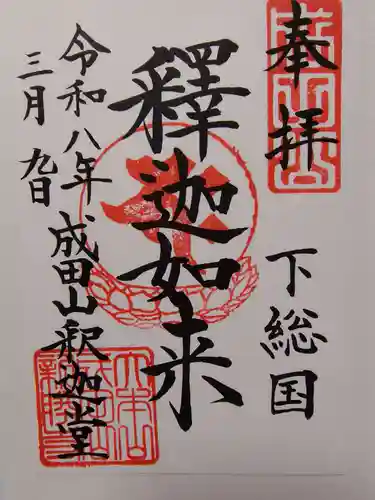 奉拝
下総国
釋迦如来
令和八年
三月九日
成田山釈迦堂